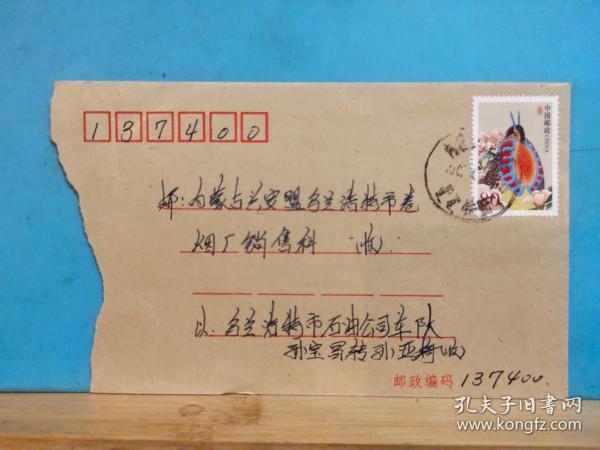 137400
中国邮政 CHINA
80
邮：内蒙古兴安盟乌兰浩特市卷
烟厂销售科 （收）
以：乌兰浩特市石油公司车队
孙宝 转孙亚 收
邮政编码 137400.
孔夫子旧书网
www.kongfz.com